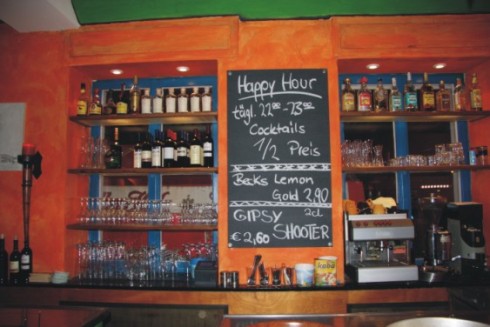 Happy Hour
tägl. 22⁰⁰-23⁰⁰
Cocktails
1/2 Preis
Becks Lemon
Gold 2,90
GIPSY 2cl
€ 2,60 SHOOTER